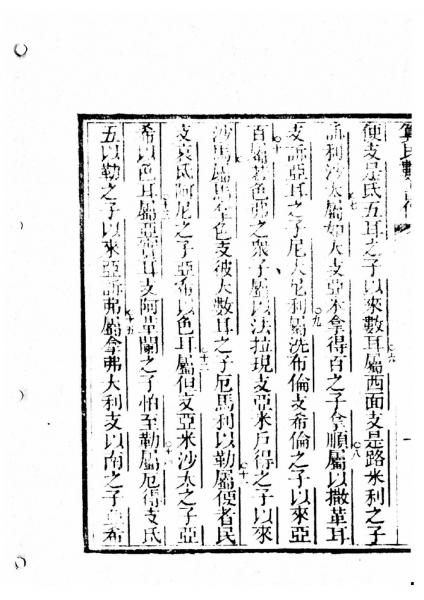 便支是氏五耳之子以來數耳屬西面支是路米利之子
訴利沙大屬如大支亞米拿得百之子拿順屬以撒革耳
支訴亞耳之子尼大尼利屬洗布倫支希倫之子以來亞
百屬若色弗之衆子屬以法拉現支亞米戶得之子以來
沙馬屬馬拿色支彼大數耳之子厄馬利以勒屬便者民
支哀氐阿尼之子亞希以色耳屬但支亞米沙大之子亞
希以色耳屬亞實耳支阿革蘭之子怕至勒屬厄得支氐
五以勒之子以來亞訴弗屬拿弗大利支以南之子希